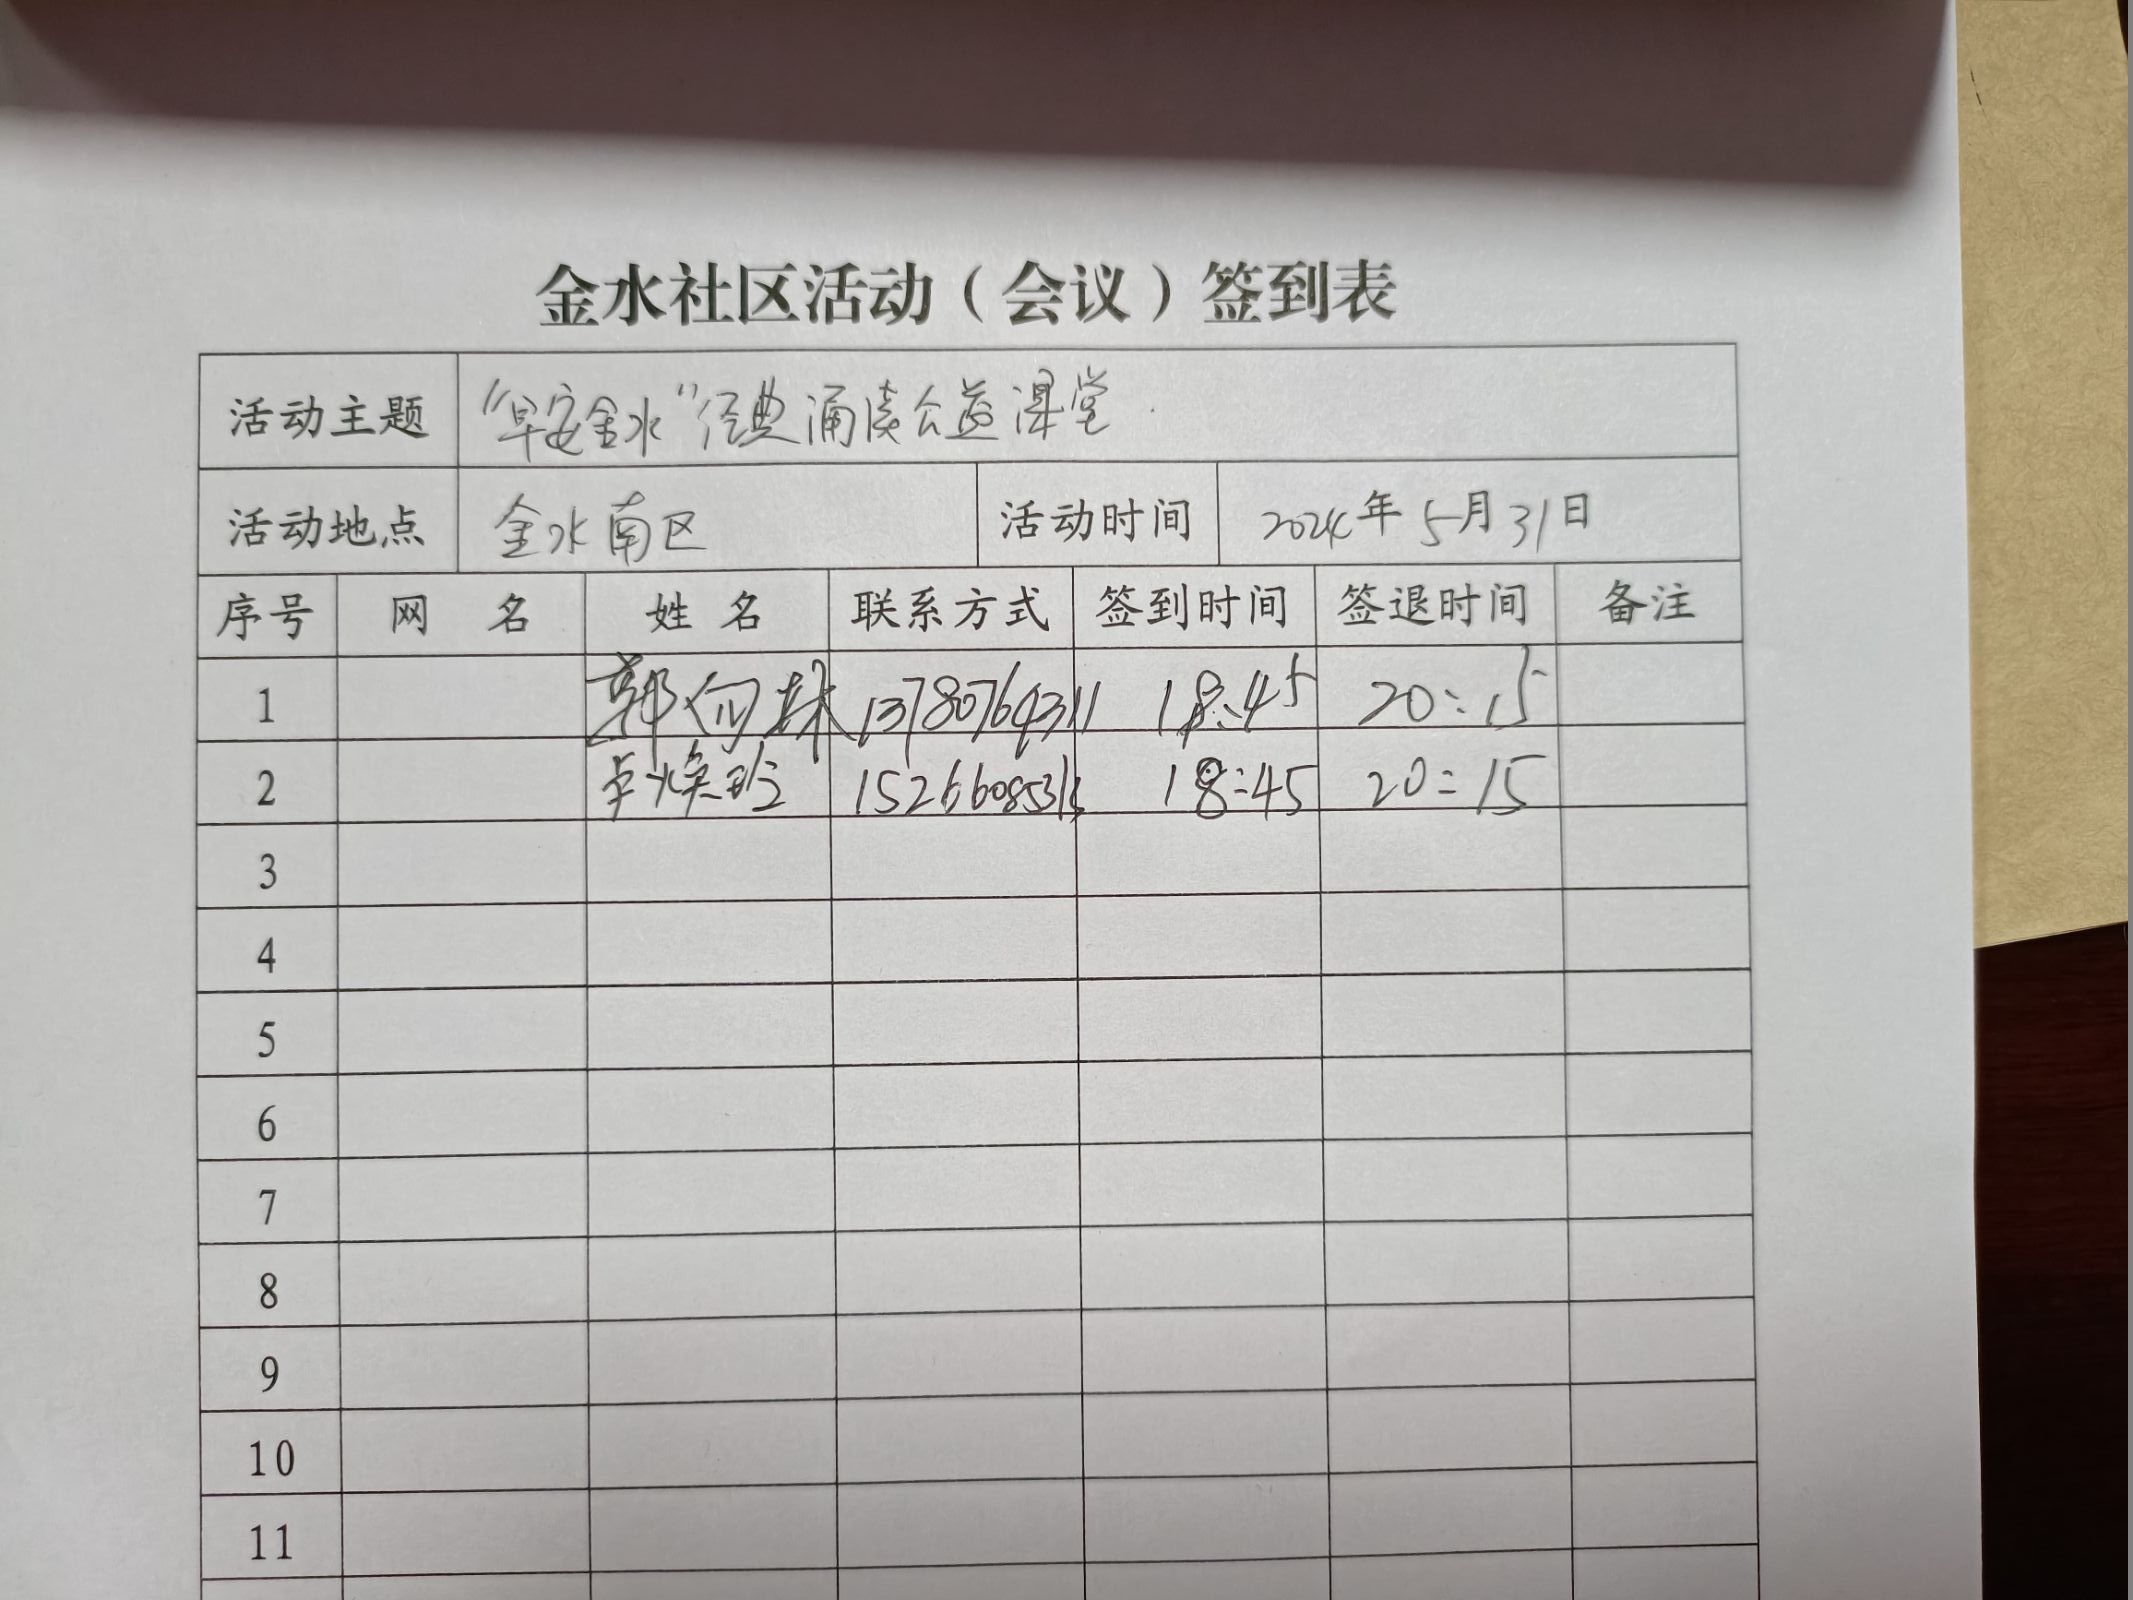 金水社区活动（会议）签到表
活动主题 “早安金水”经典诵读公益课堂
活动地点 金水南区 活动时间 2024年5月31日
序号 网名 姓名 联系方式 签到时间 签退时间 备注
1 郭 13780764311 18:45 20:15
2 卓焕 18:45 20:15
3
4
5
6
7
8
9
10
11